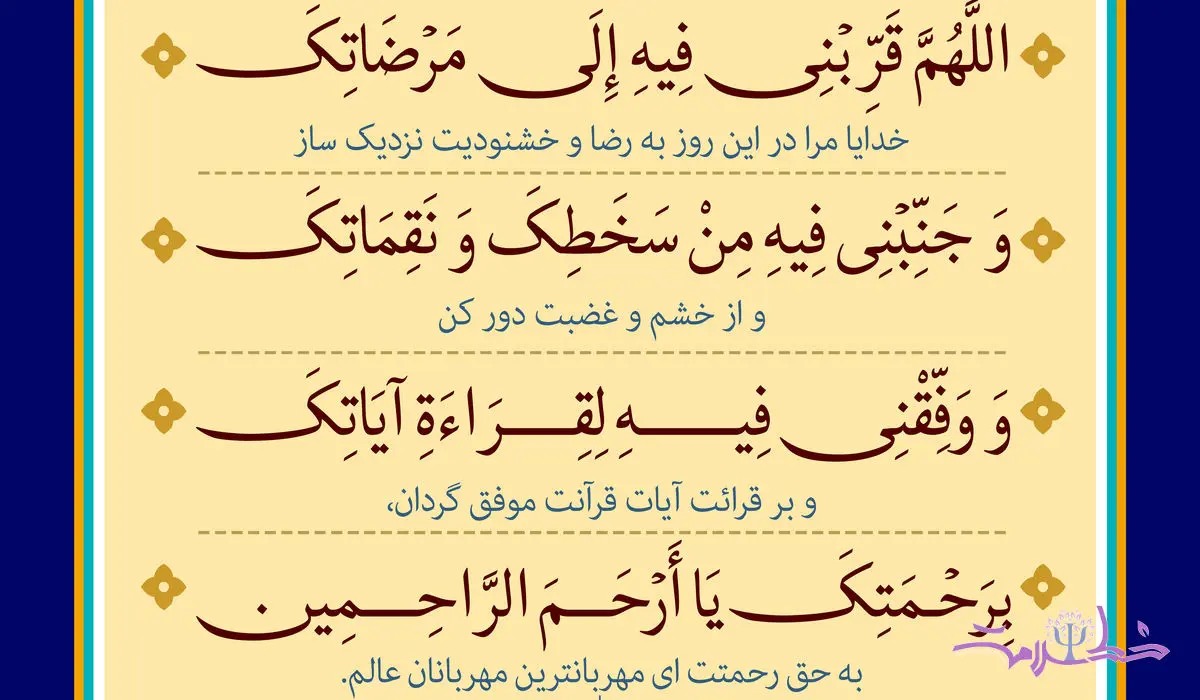 اللَّهُمَّ قَرِّبْنِی فِیهِ إِلَی مَرْضَاتِکَ
خدایا مرا در این روز به رضا و خشنودیت نزدیک ساز
وَ جَنِّبْنِی فِیهِ مِنْ سَخَطِکَ وَ نَقِمَاتِکَ
و از خشم و غضبت دور کن
وَ وَفِّقْنِی فِیهِ لِقِرَاءَةِ آیَاتِکَ
و بر قرائت آیات قرآنت موفق گردان،
بِرَحْمَتِکَ یَا أَرْحَمَ الرَّاحِمِین.
به حق رحمتت ای مهربانترین مهربانان عالم.
خط سلامت